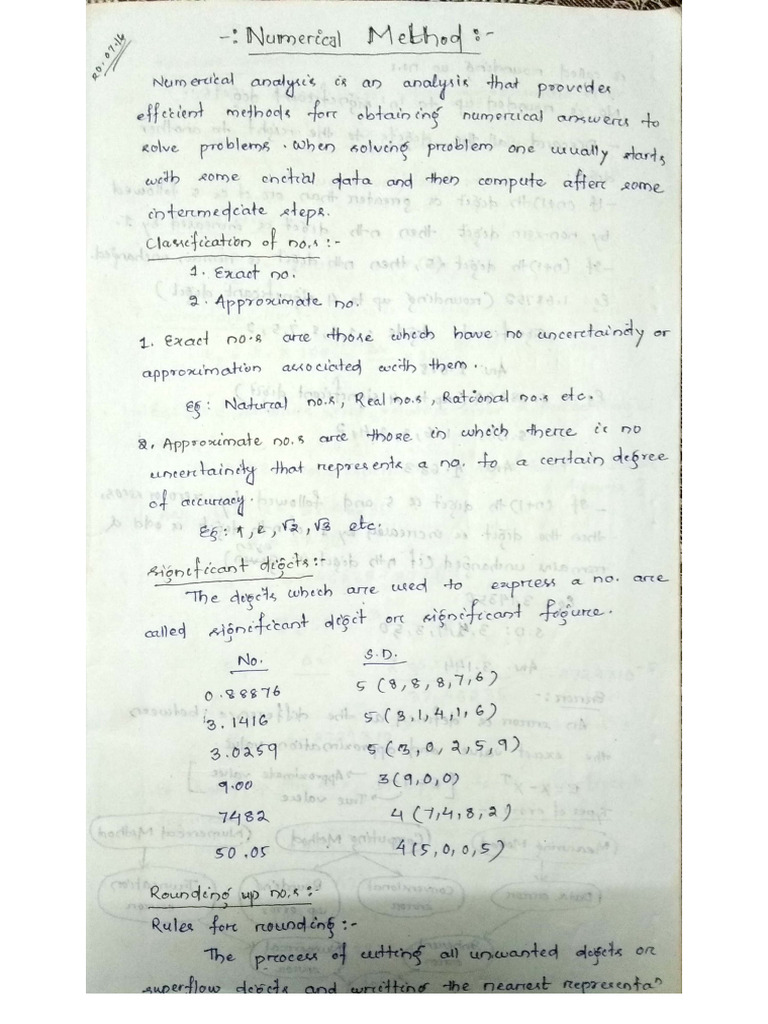 20.07.16
-: Numerical Method :-
Numerical analysis is an analysis that provides
efficient methods for obtaining numerical answers to
solve problems. When solving problem one usually starts
with some initial data and then compute after some
intermediate steps.
Classification of no.s :-
1. Exact no.
2. Approximate no.
1. Exact no.s are those which have no uncertainity or
approximation associated with them.
Eg: Natural no.s, Real no.s, Rational no.s etc.
2. Approximate no.s are those in which there is no
uncertainity that represents a no. to a certain degree
of accuracy.
Eg: , e, √2, √3 etc.
Significant digits:-
The digits which are used to express a no. are
called significant digit or significant figure.
No. S.D.
0.88876 5 (8, 8, 8, 7, 6)
3.1416 5 (3, 1, 4, 1, 6)
3.0259 5 (3, 0, 2, 5, 9)
9.00 3 (9, 0, 0)
7482 4 (7, 4, 8, 2)
50.05 4 (5, 0, 0, 5)
Rounding up no.s :-
Rules for rounding :-
The process of cutting all unwanted digits or
superflow digits and writting the nearest representa